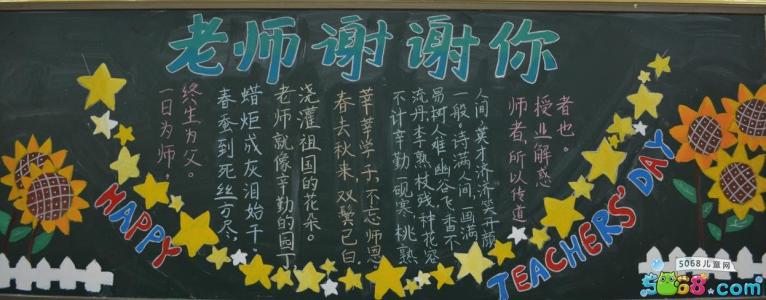 老师谢谢你
者也。
授业解惑
师者,所以传道
人间,英才济济笑开颜
一般,诗满人间,画满
易树人难幽谷飞香不
流丹李熟枝残种花容
不计辛勤一砚寒桃熟
莘莘学子,不忘师恩
春去秋来,双鬓已白
浇灌祖国的花朵。
老师就像辛勤的园丁
蜡炬成灰泪始干,
春蚕到死丝方尽,
终生为父。
一日为师,
HAPPY TEACHERS' DAY
5068儿童网
5068.com